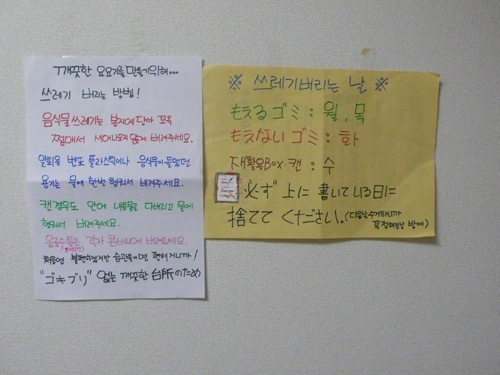 깨끗한 요요기를 만들기위해...
쓰레기 버리는 방법!
음식물쓰레기는 봉지에 담아 꼬옥
짜매서 새어나오지 않게 버려주세요.
일회용 벤또 플라스틱이나 음식물이 들었던
용기는 물에 한번 헹궈서 버려주세요.
캔 경우도 안에 내용물을 다버리고 물에
헹궈서 버려주세요.
각자 콘비니에 버려주세요.
처음엔 불편하겠지만 습관들이면 편해지니까!
"ゴキブリ" 없는 깨끗한 台所のため
※ 쓰레기버리는 날 ※
もえるゴミ : 월, 목
もえないゴミ : 화
재활용Box·캔 : 수
必ず 上に 書いている日に
捨てて ください。(다음날수거해니까
꼭 전째날 밤에)